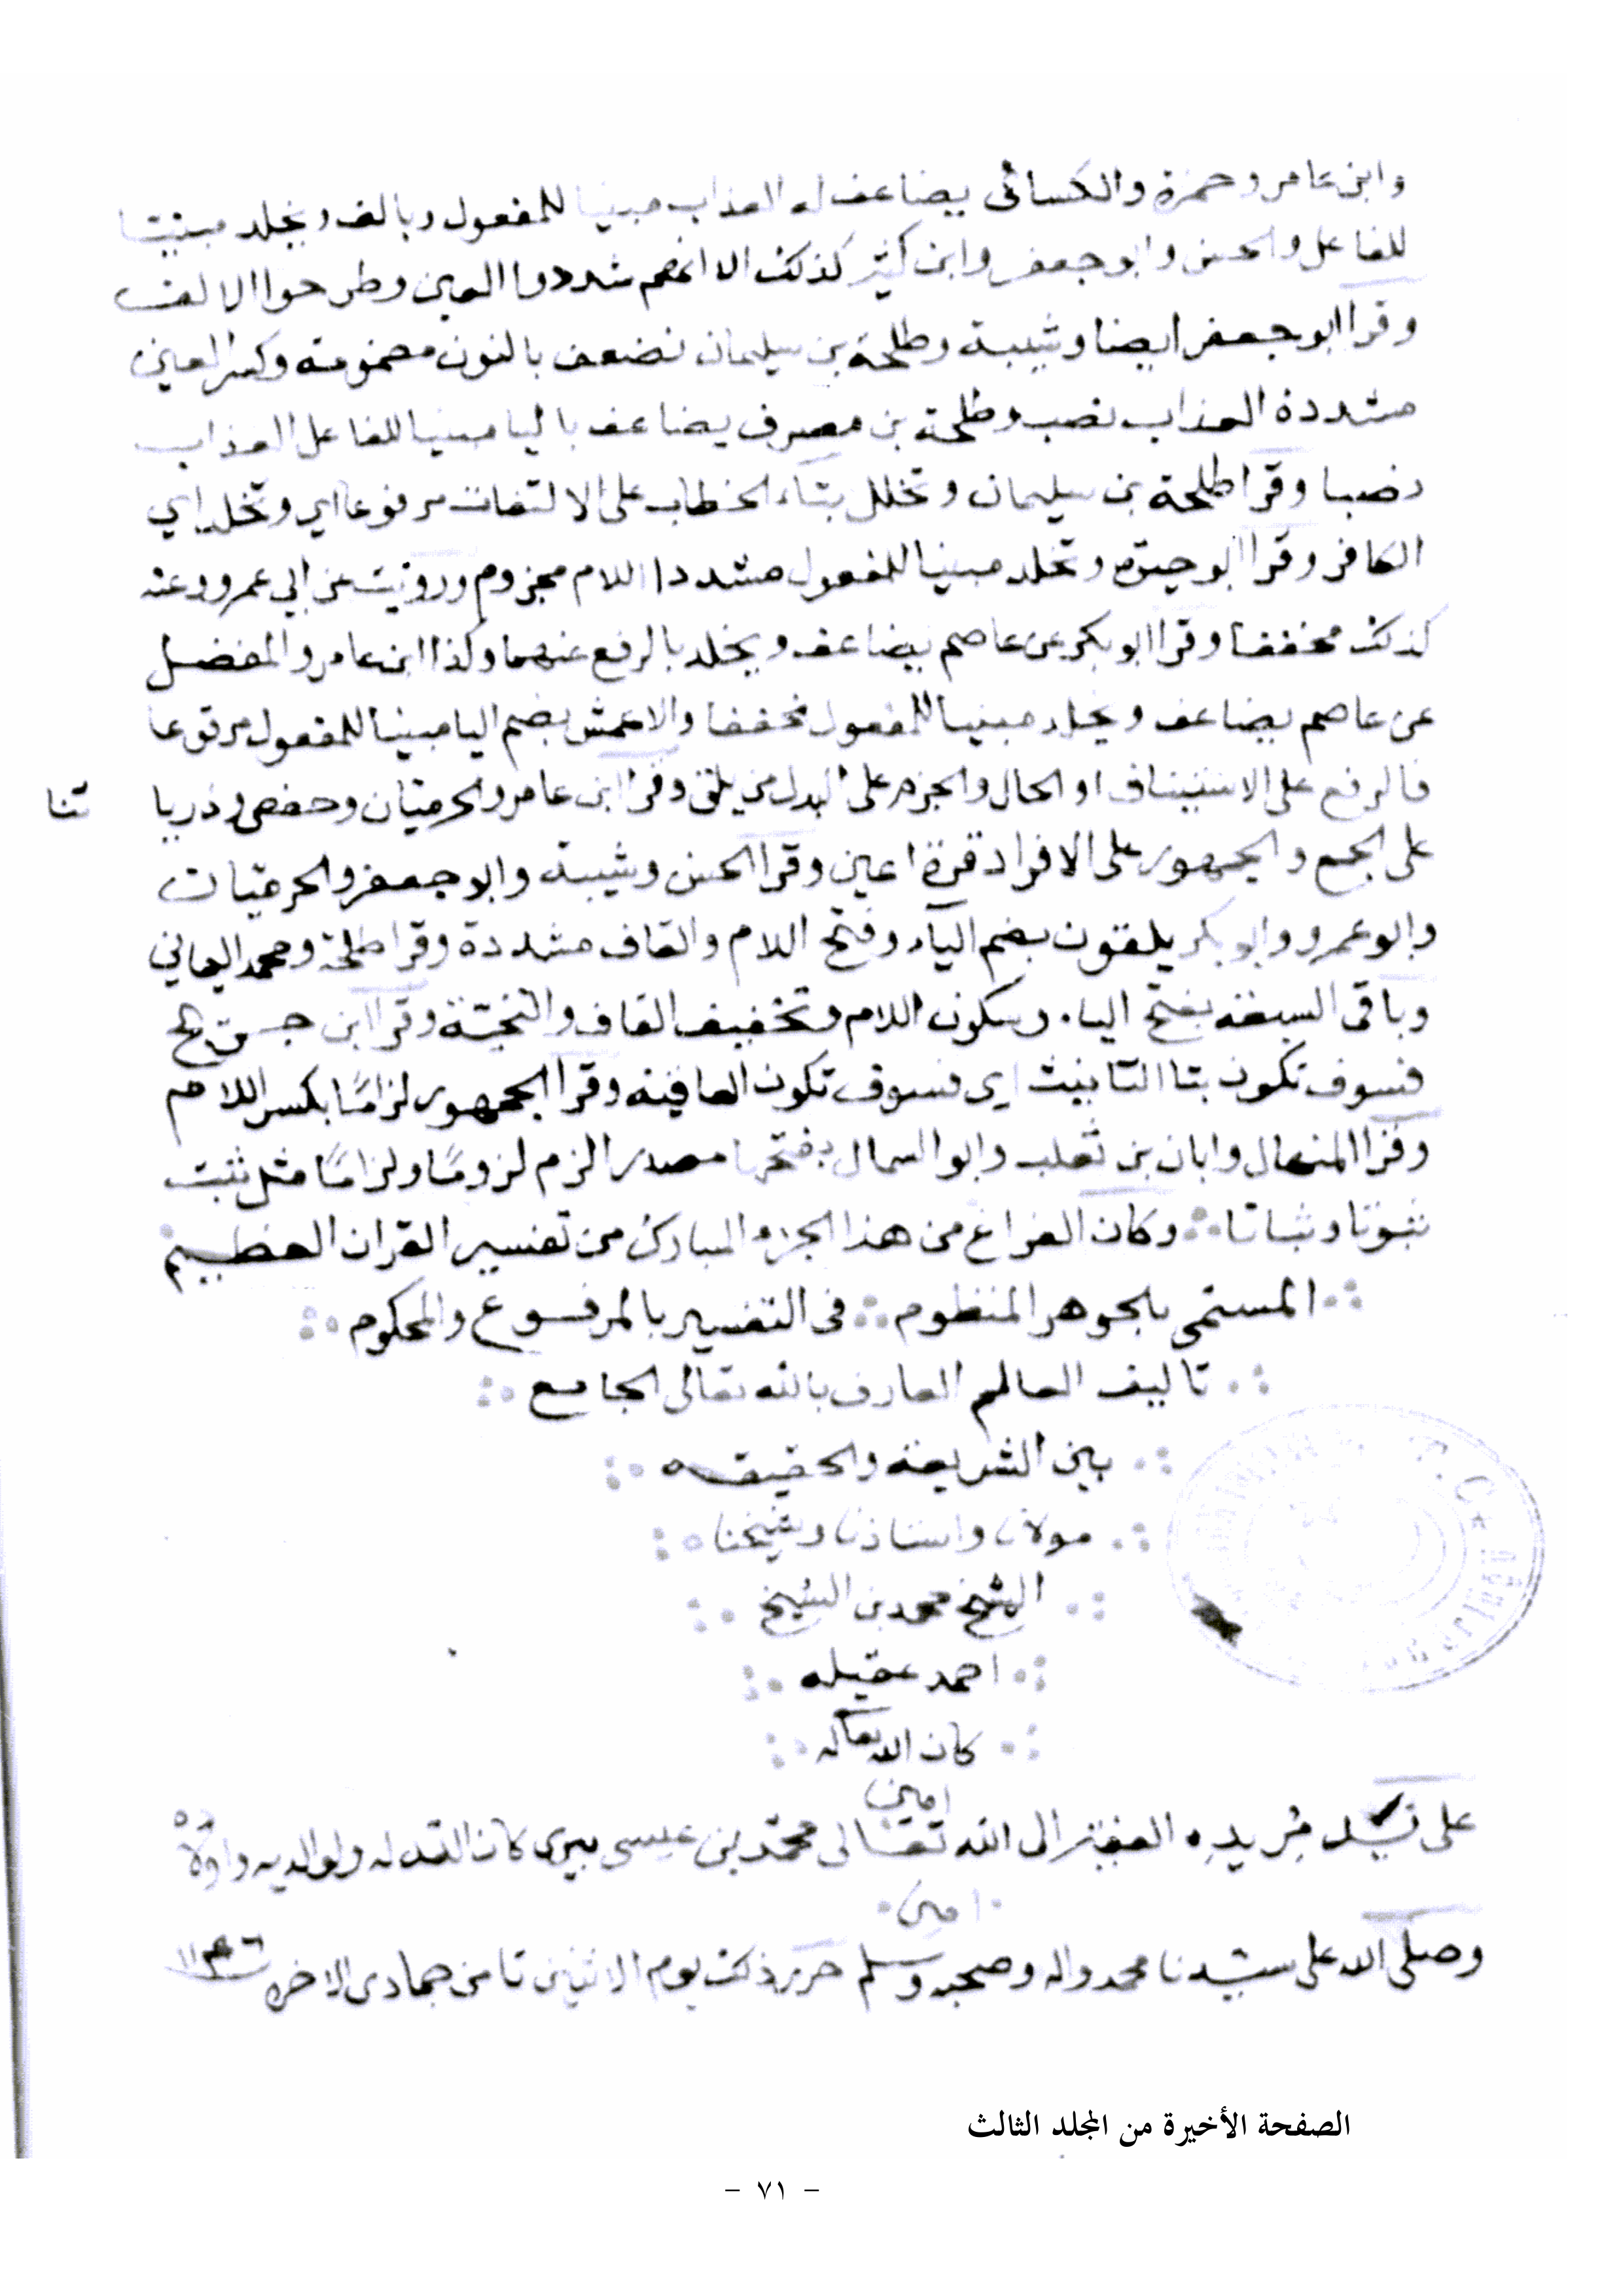 وابن عامر وحمزة والكسائى يضاعف له العذاب مبنيا للمفعول وبالف ويخلد مبنيا
للفاعل والحسن وابو جعفر وابن كثير كذلك الا انهم شددوا العين وطرحوا الالف
وقرا ابو جعفر ايضا وشيبة وطلحة بن سليمان نضعف بالنون مضمومة وكسر العين
مشددة العذاب نصب وطلحة بن مصرف يضاعف باليا مبنيا للفاعل العذاب
نصبا وقرا طلحة بن سليمان وتخلد بتاء الخطاب على الالتفات مرفوعا اي وتخلد اي
الكافر وقرا ابو حيوة وتخلد مبنيا للمفعول مشددا اللام مجزوم ورويت عن ابي عمرو وعنه
كذلك مخففا وقرا ابو بكر عن عاصم يضاعف ويخلد بالرفع عنهما وكذا ابن عامر والمفضل
عن عاصم يضاعف ويخلد مبنيا للمفعول مخففا والاعمش بضم اليا مبنيا للمفعول مرفوعا
فالرفع على الاستيناف او الحال والجزم على البدل من يلق وقرا ابن عامر والحرميان وحفص وذريا تنا
على الجمع والجمهور على الافراد قرة اعين وقرا الحسن وشيبة وابو جعفر والحرميان
وابو عمرو وابو بكر يلقون بضم الياء وفتح اللام والقاف مشددة وقرا طلحة ومحمد اليماني
وباقى السبعة بفتح الياء وسكون اللام وتخفيف القاف والتحية وقرا ابن جريج
فسوف تكون بتا التانيث اي فسوف تكون العاقبة وقرا الجمهور لزامًا بكسر اللام
وقرا المنهال وابان بن تغلب وابو السمال بفتحها مصدر الزم لزومًا ولزامًا مثل ثبت
ثبوتا وثباتا وكان الفراغ من هذا الجزء المبارك من تفسير القران العظيم
المستمى بالجوهر المنظوم فى التفسير بالمرفوع والمحكوم
تاليف العالم العارف بالله تعالى الجامع
بين الشريعة والحقيقه
مولانا واستاذنا وشيخنا
الشيخ محمد بن الشيخ
احمد عقيله
كان الله تعالى له
امين
على يد مُريدِه الفقير الى الله تعالى محمد بن عيسى بيرى كان الله له ولوالديه واولاده
امين
وصلى الله على سيدنا محمد واله وصحبه وسلم حرر ذلك يوم الاثنين ثامن جمادى الاخره
T. C.
الصفحة الأخيرة من المجلد الثالث
- ٧١ -